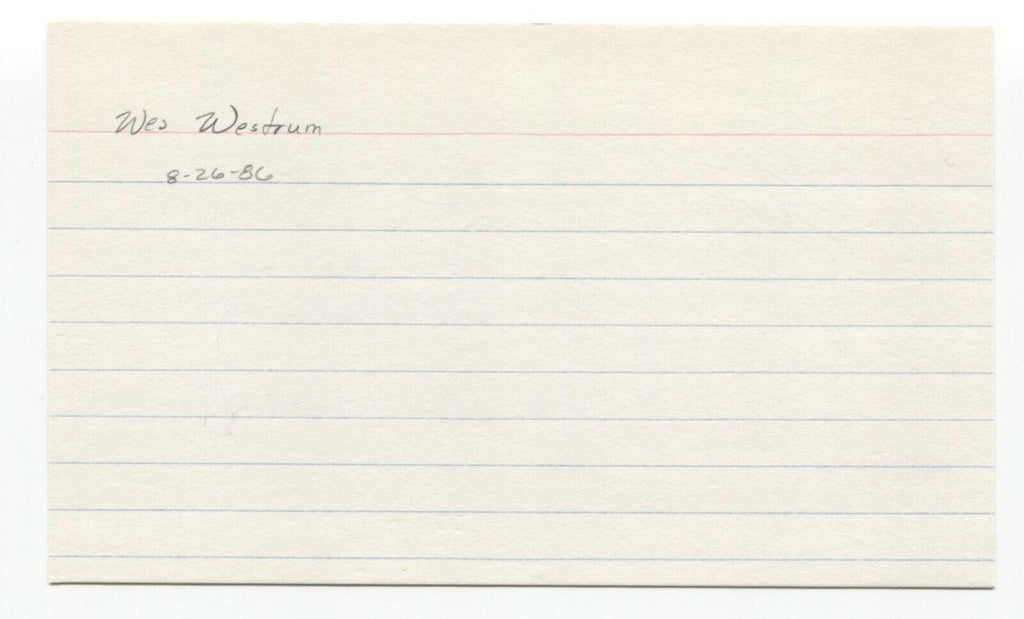 Wes Westrum
8-26-86